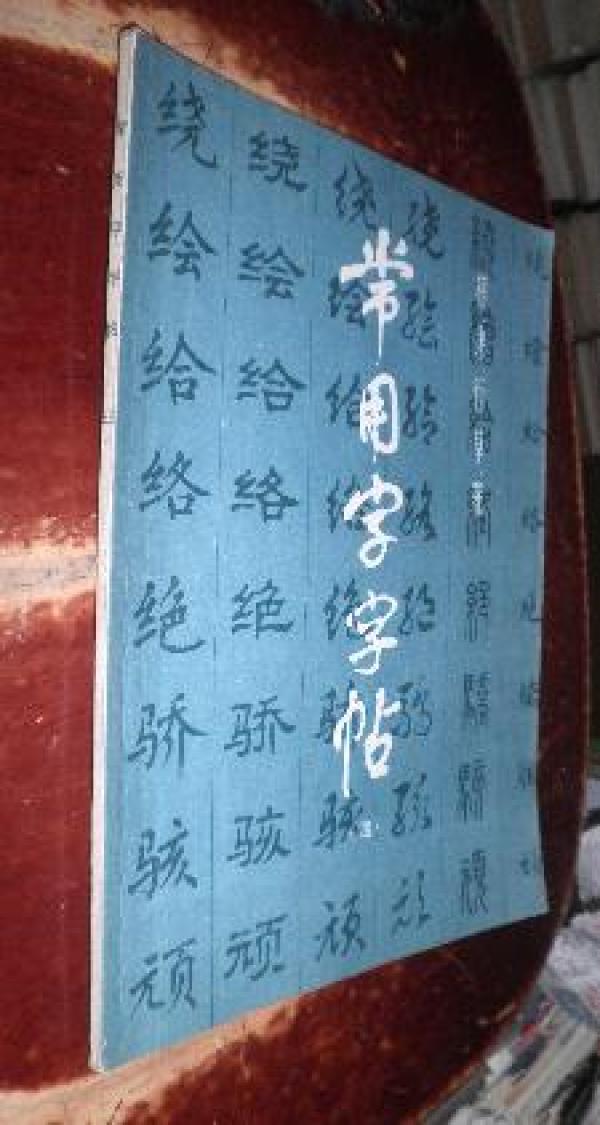 绕绘给络绝骄骇顽
绕绘给络绝骄骇顽
绕绘给络绝骄骇顽
绕绘给络绝骄骇顽
常用字字帖
楷隶行草篆